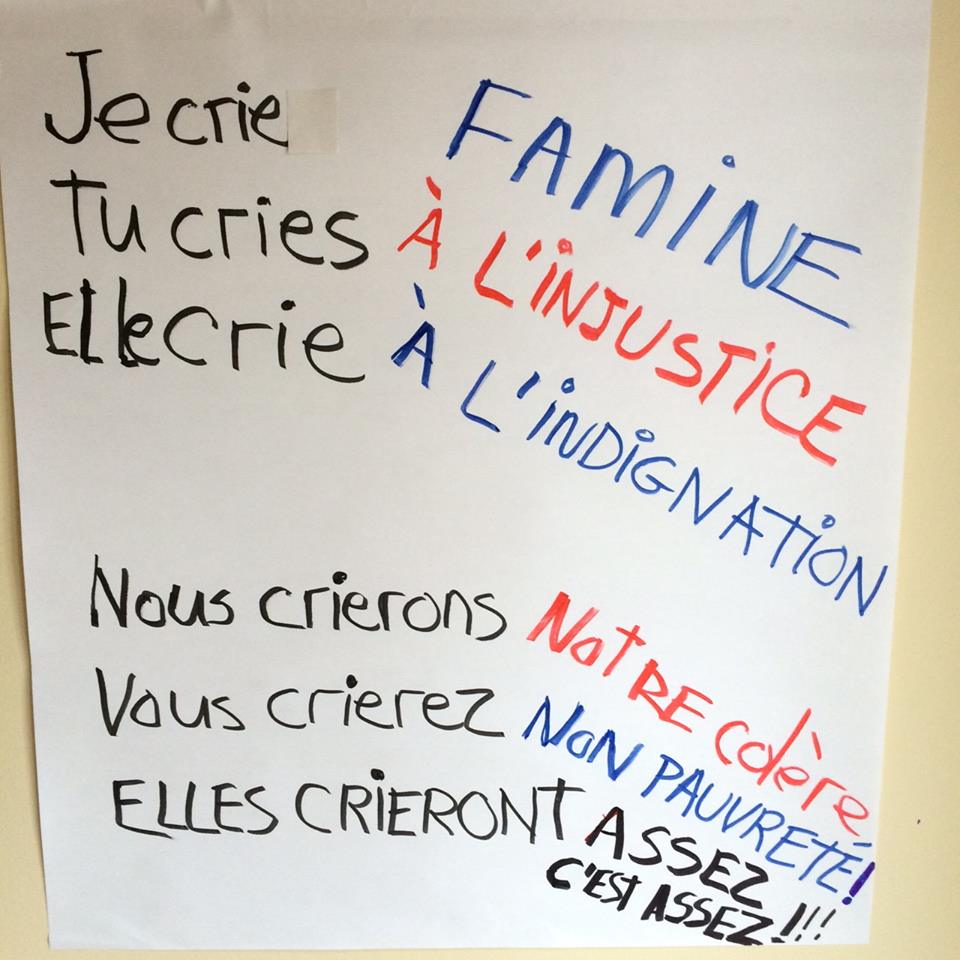 Je crie FAMINE
Tu cries À L'INJUSTICE
Elle crie À L'INDIGNATION
Nous crierons NOTRE colère
Vous crierez NON PAUVRETÉ!
ELLES CRIERONT ASSEZ
C'EST ASSEZ!!!!